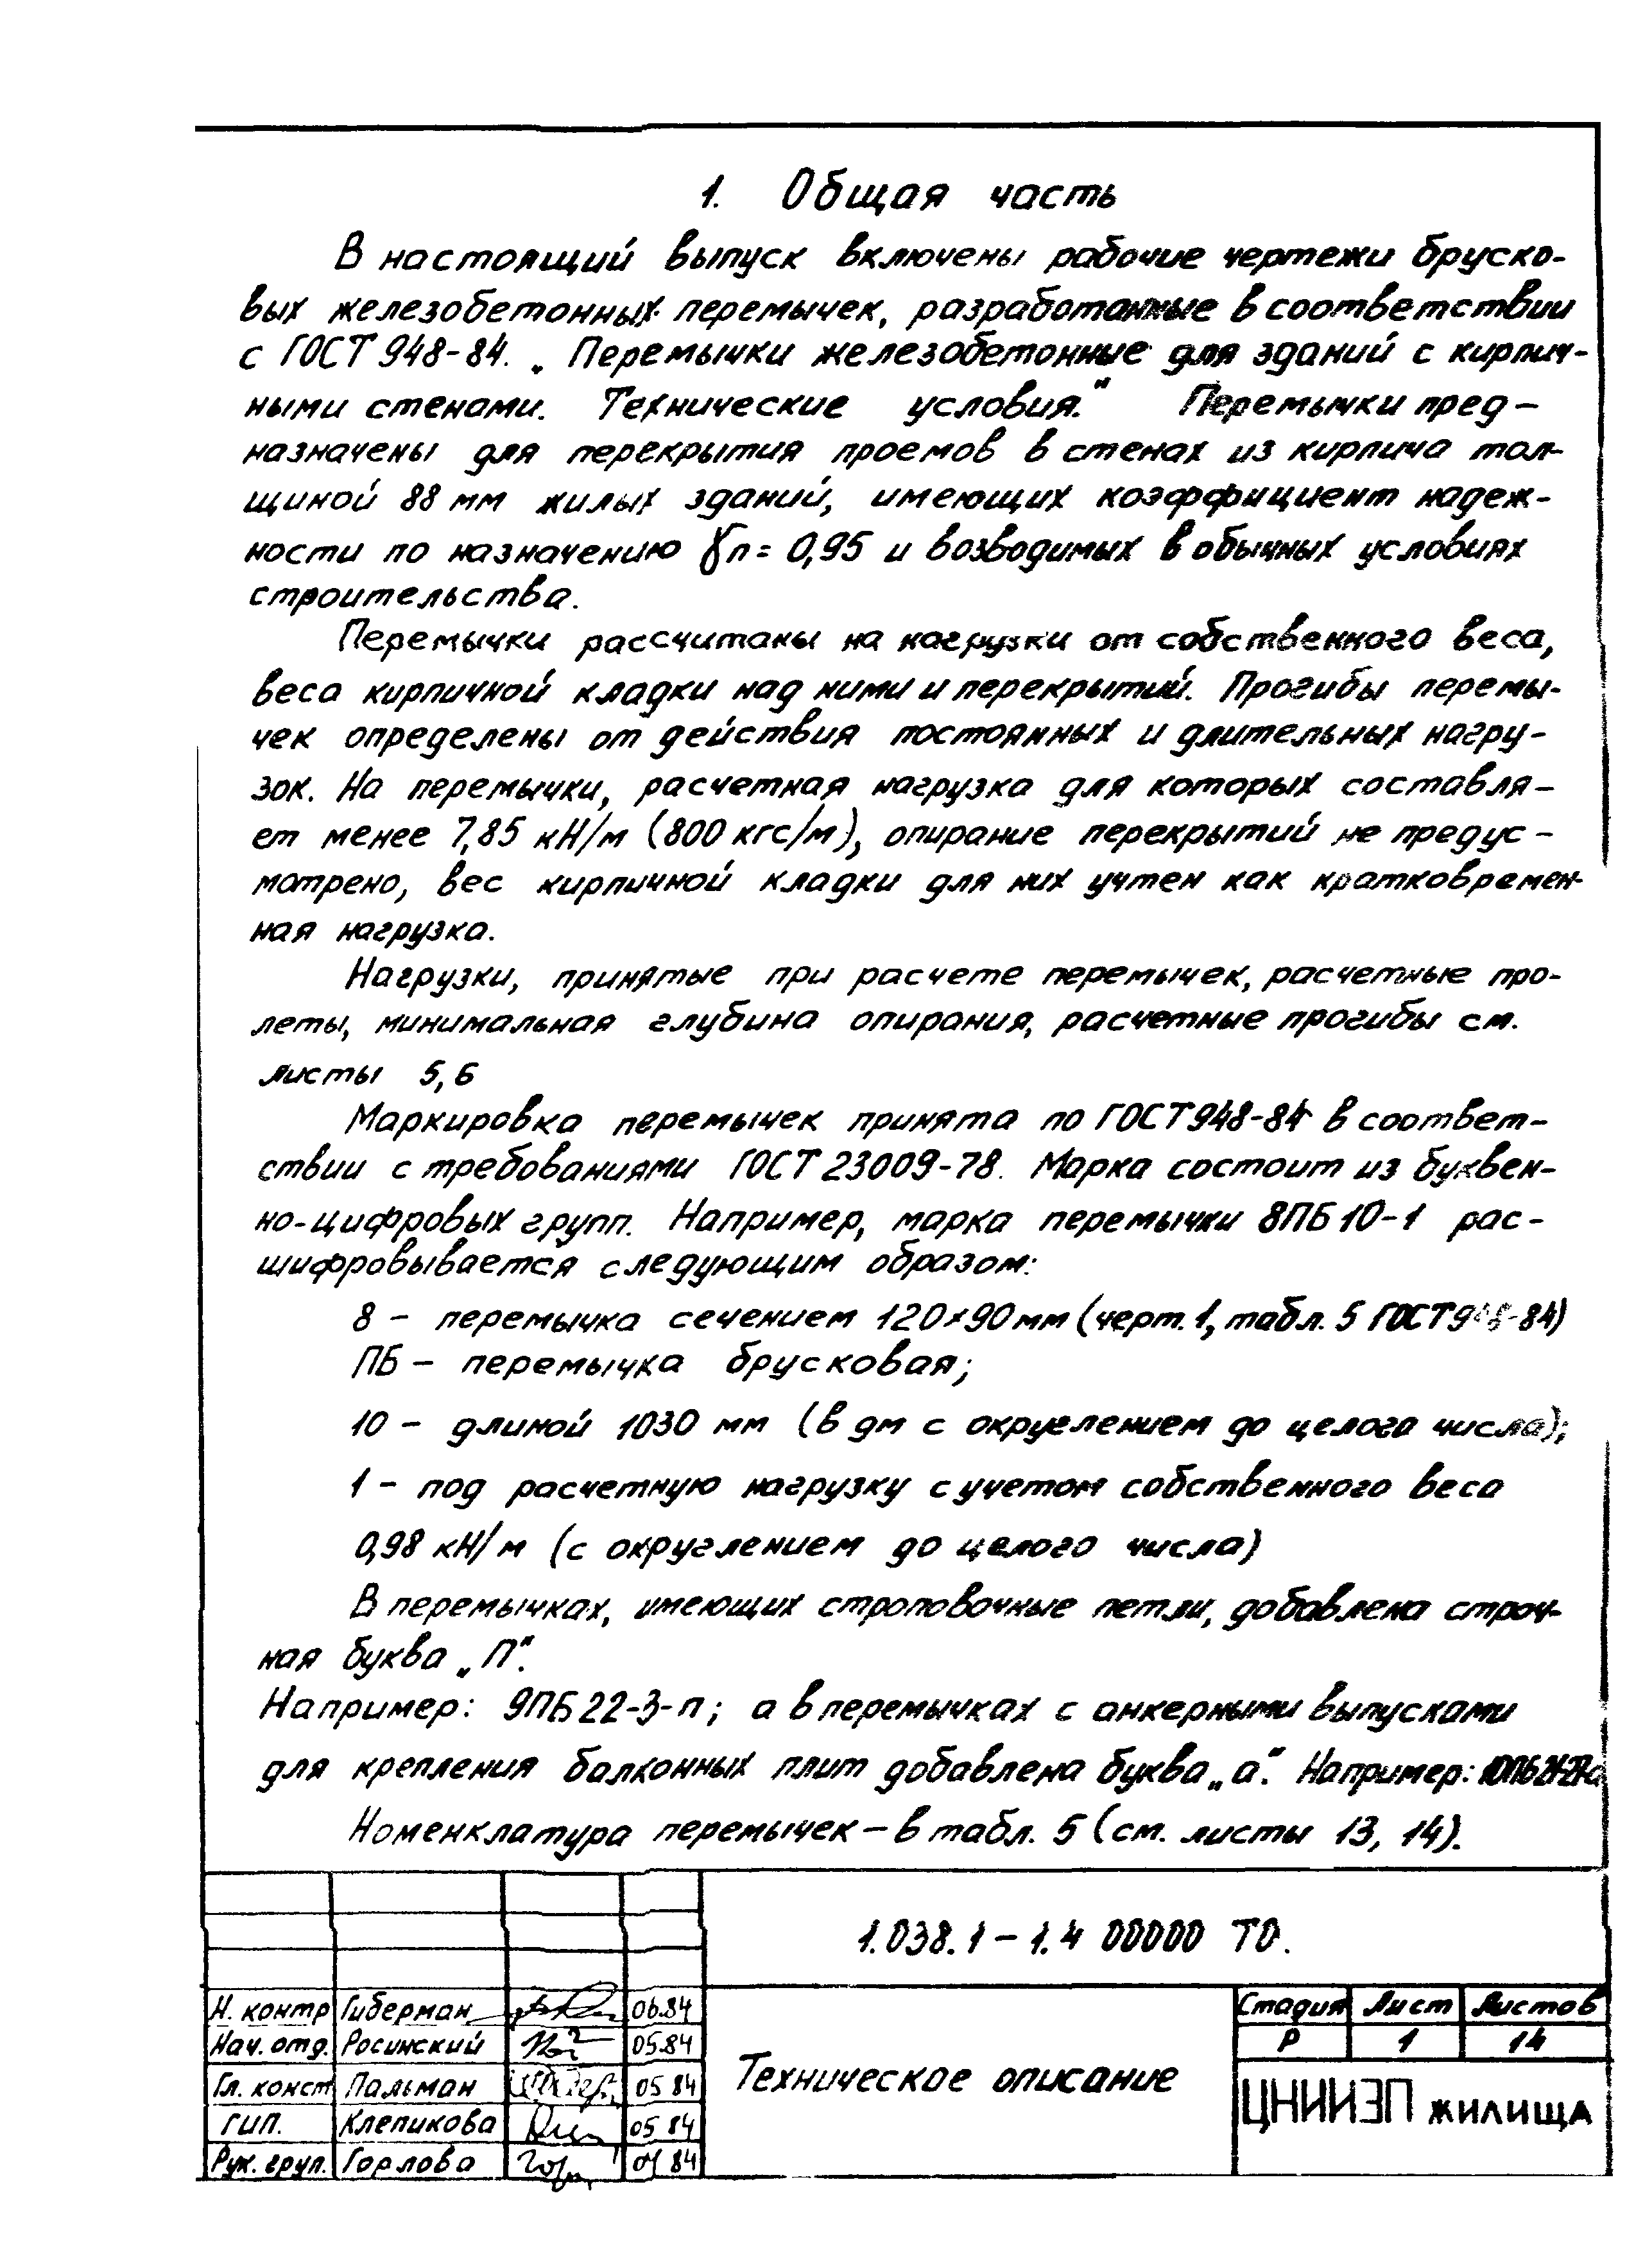 1. Общая часть
В настоящий выпуск включены рабочие чертежи бруско-
вых железобетонных перемычек, разработанные в соответствии
с ГОСТ 948-84. „Перемычки железобетонные для зданий с кирпич-
ными стенами. Технические условия." Перемычки пред-
назначены для перекрытия проемов в стенах из кирпича тол-
щиной 88 мм жилых зданий, имеющих коэффициент надеж-
ности по назначению γn = 0,95 и возводимых в обычных условиях
строительства.
Перемычки рассчитаны на нагрузки от собственного веса,
веса кирпичной кладки над ними и перекрытий. Прогибы перемы-
чек определены от действия постоянных и длительных нагру-
зок. На перемычки, расчетная нагрузка для которых составля-
ет менее 7,85 кН/м (800 кгс/м), опирание перекрытий не предус-
мотрено, вес кирпичной кладки для них учтен как кратковремен-
ная нагрузка.
Нагрузки, принятые при расчете перемычек, расчетные про-
леты, минимальная глубина опирания, расчетные прогибы см.
листы 5, 6
Маркировка перемычек принята по ГОСТ 948-84 в соответ-
ствии с требованиями ГОСТ 23009-78. Марка состоит из буквен-
но-цифровых групп. Например, марка перемычки 8ПБ 10-1 рас-
шифровывается следующим образом:
8 - перемычка сечением 120×90 мм (черт. 1, табл. 5 ГОСТ 948-84)
ПБ - перемычка брусковая;
10 - длиной 1030 мм (в дм с округлением до целого числа);
1 - под расчетную нагрузку с учетом собственного веса
0,98 кН/м (с округлением до целого числа)
В перемычках, имеющих строповочные петли, добавлена строч-
ная буква „П".
Например: 9ПБ 22-3-п; а в перемычках с анкерными выпусками
для крепления балконных плит добавлена буква „а". Например:
Номенклатура перемычек - в табл. 5 (см. листы 13, 14).
1.038.1-1.4 00000 ТО.
Н. контр Гиберман 06.84
Нач. отд. Росинский 05.84
Гл. конст Пальман 05 84
ГИП. Клепикова 05 84
Рук. груп. Горлова 84
Техническое описание
Стадия Лист Листов
Р 1 14
ЦНИИЭП жилища